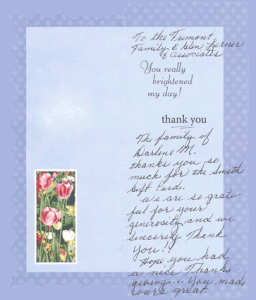 To the Fremont
Family & Glen Lerner
& Associates
You really
brightened
my day!
thank you
The family of
Darlene M.
thanks you so
much for the Smith
Gift Card.
we are so grate
ful for your
generosity and we
sincerely Thank
you!!
Hope you had
a nice Thanks
giving.. You made
ours great